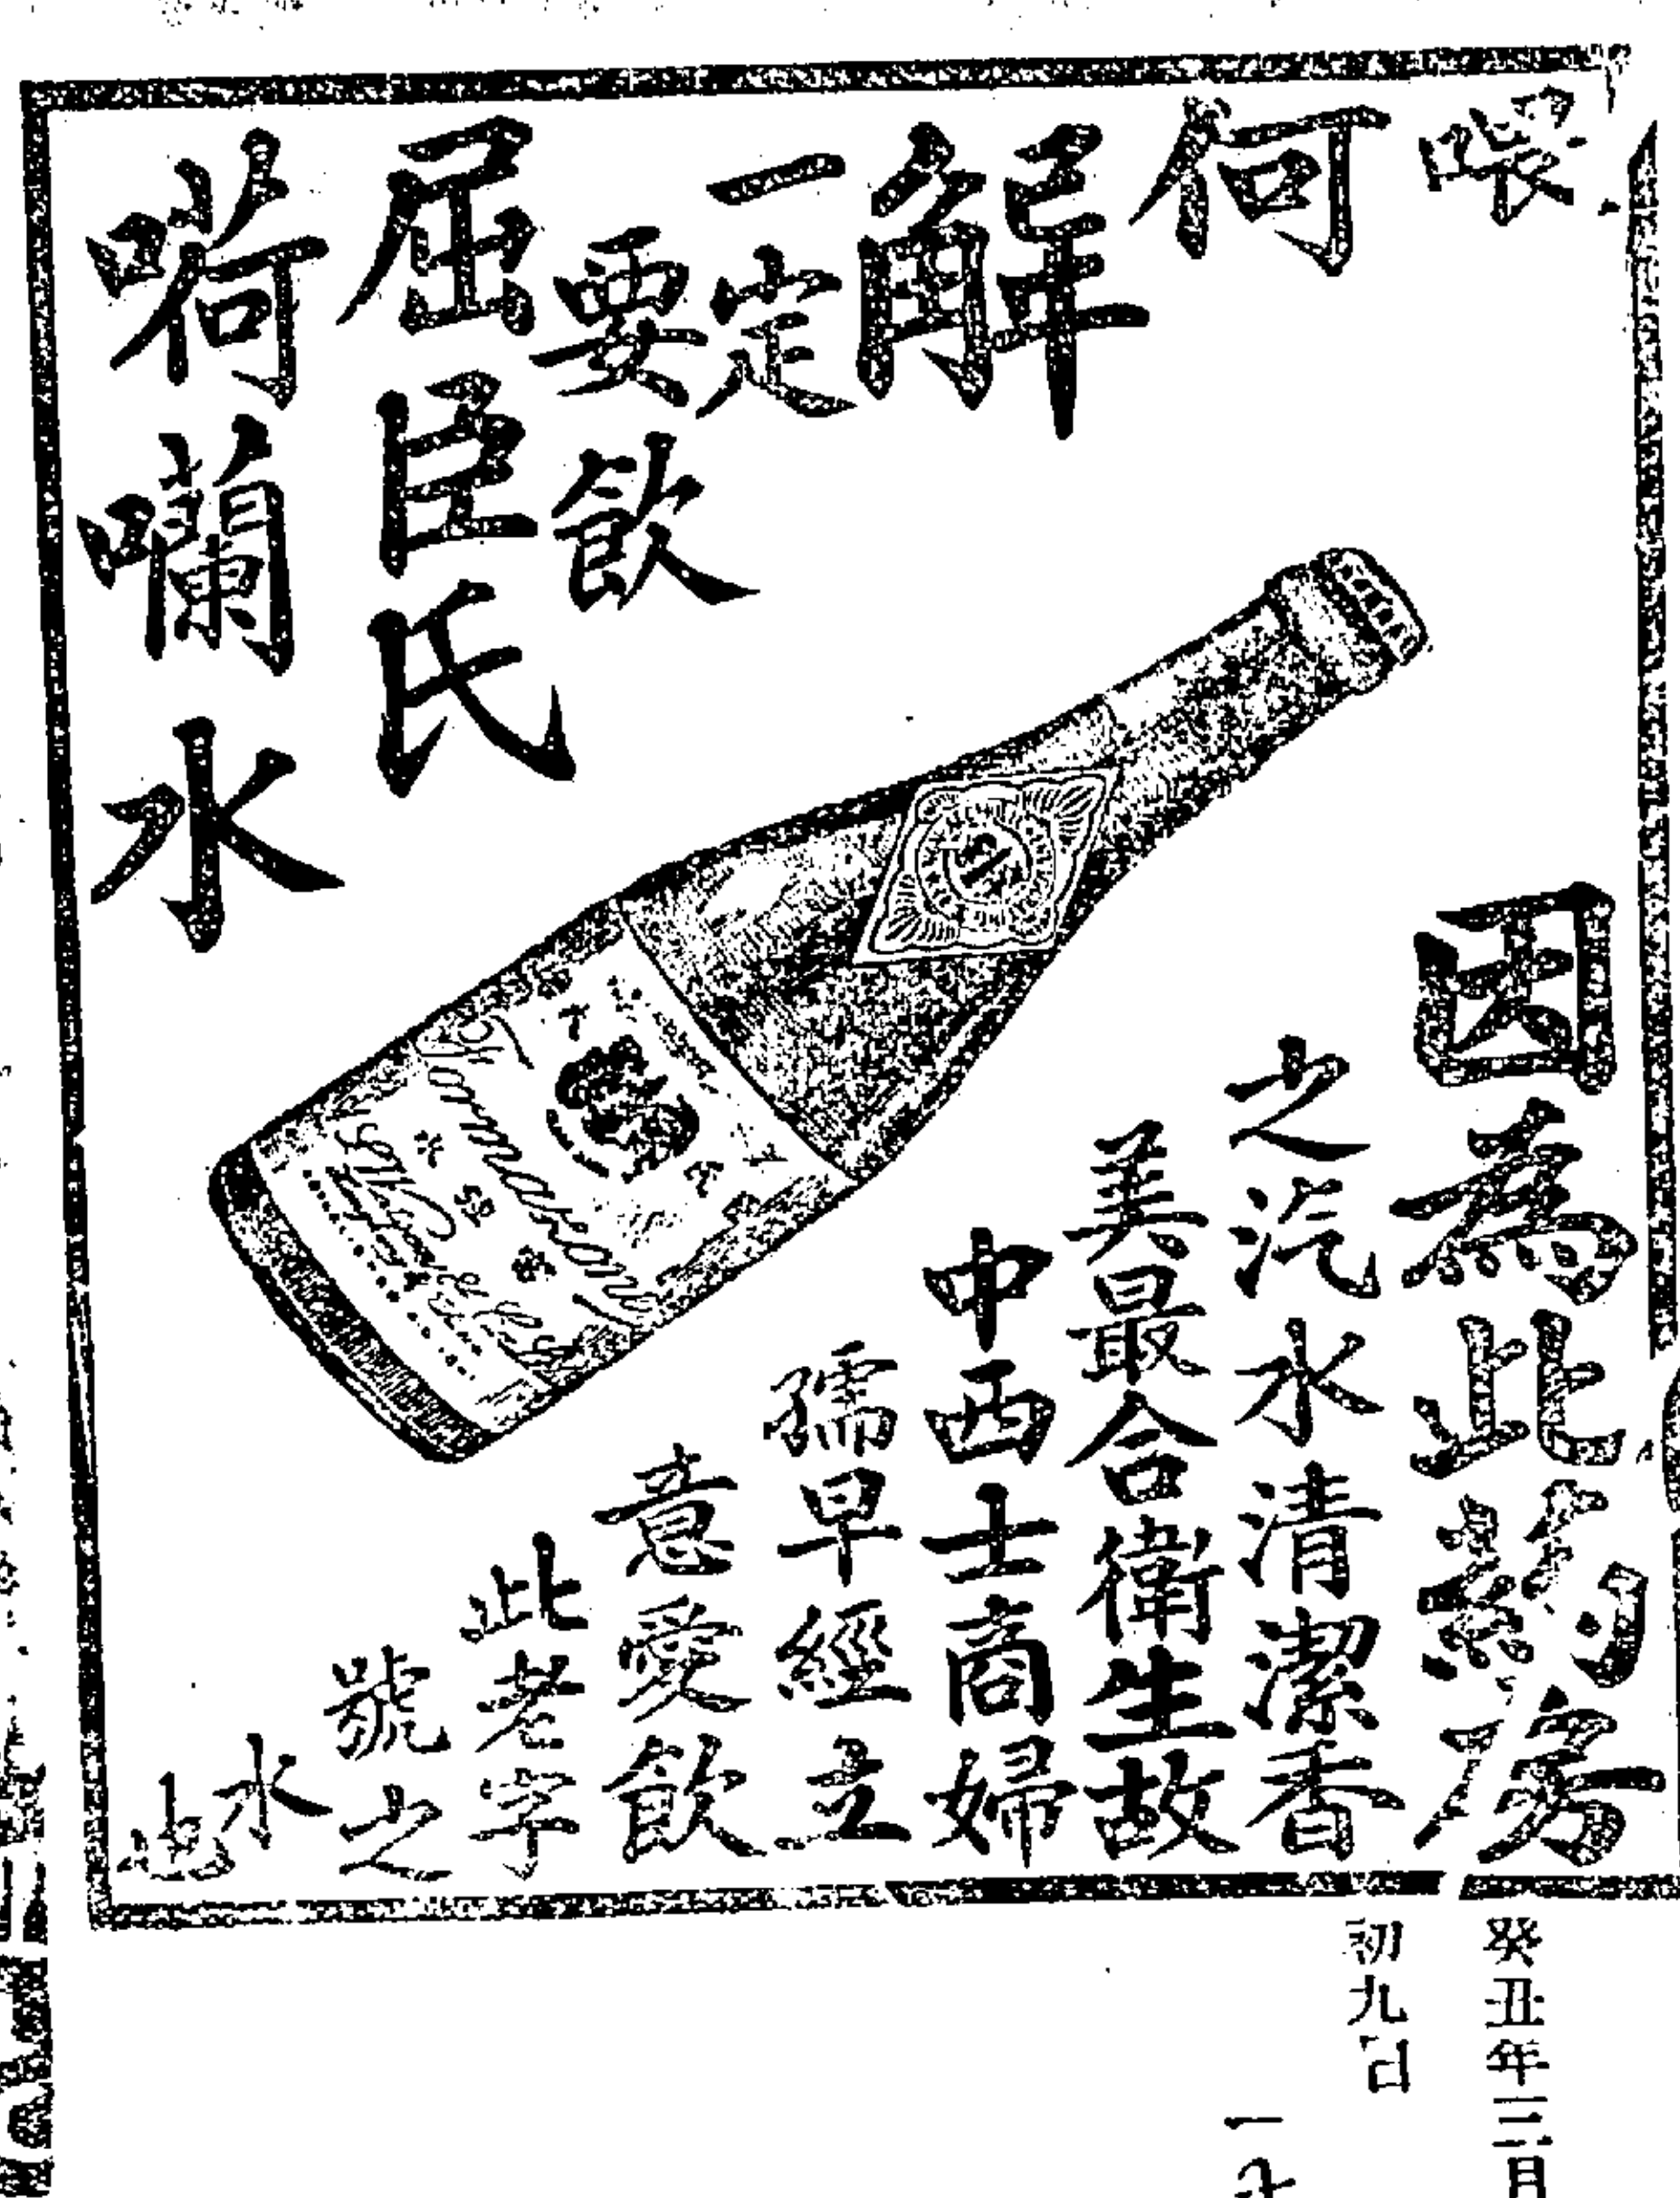 喂
何
解
一定
要飲
屈臣氏
㗿囒水
因為此葯房
之汽水清潔香
美最合衛生故
中西士商婦
孺早經立
意愛飲
此老字
號之
水也
癸丑年三月
初九日
一